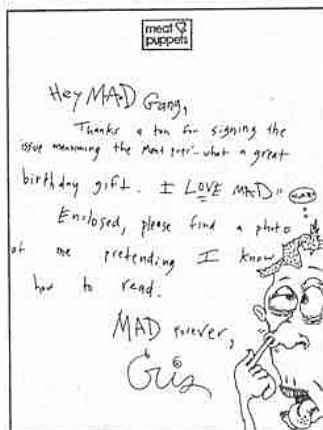 meat
puppets
Hey MAD Gang,
Thanks a ton for signing the
issue mentioning the Meat pups - what a great
birthday gift. I LOVE MAD"
Enclosed, please find a photo
of me pretending I know
how to read.
MAD forever,
Cris